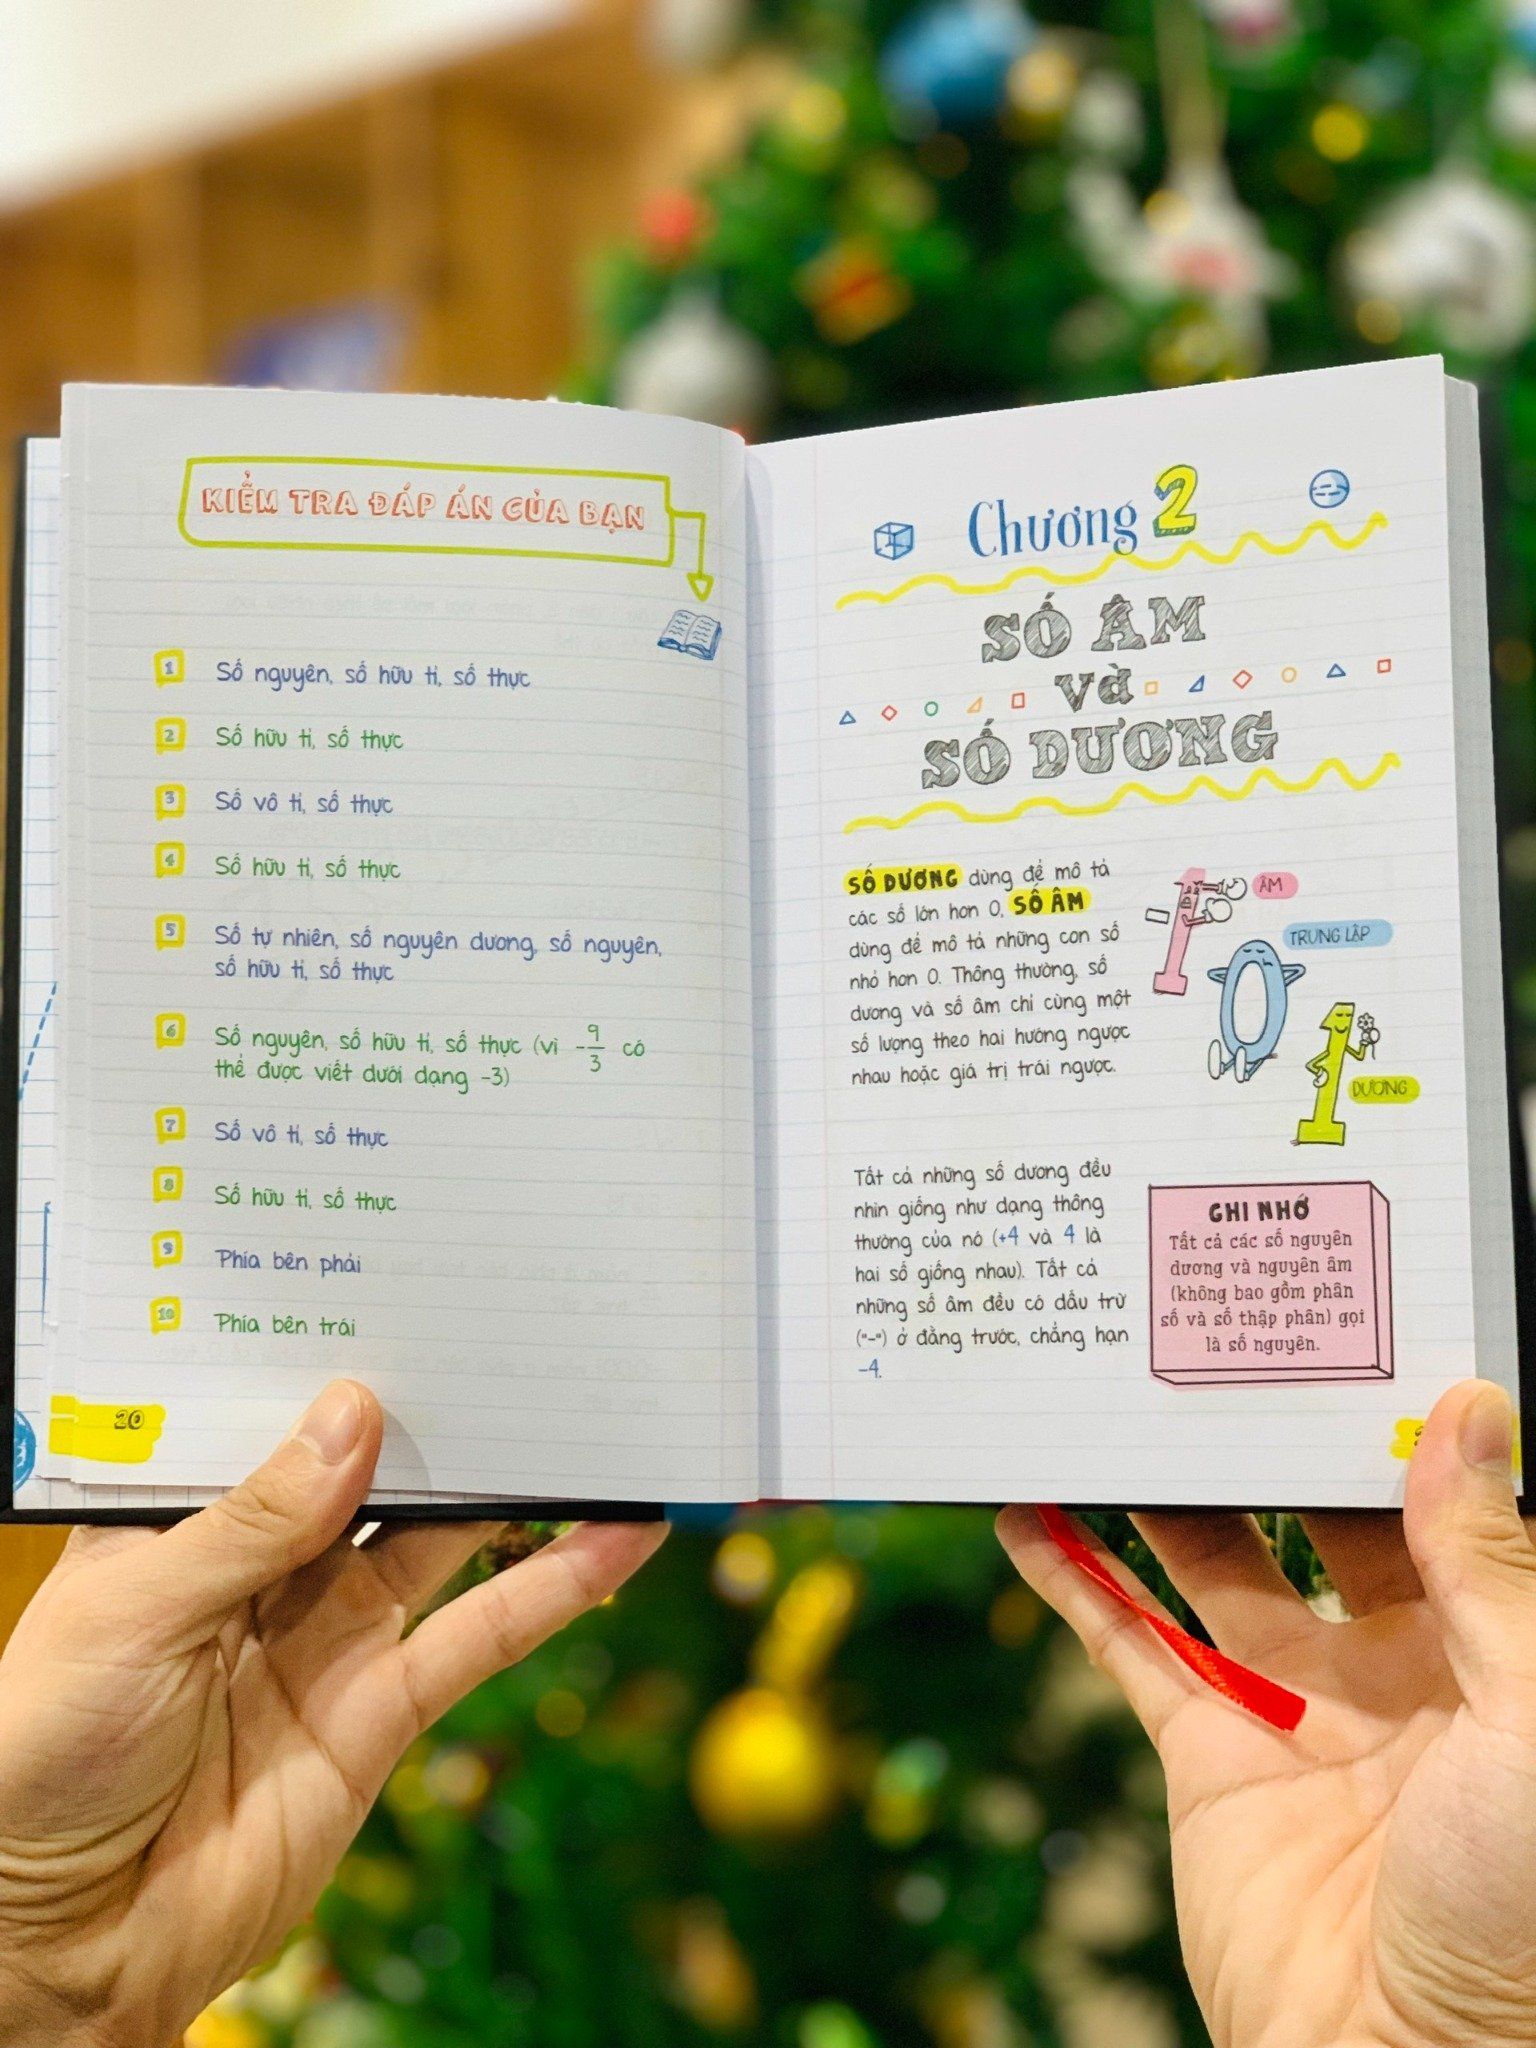 KIỂM TRA ĐÁP ÁN CỦA BẠN
1 Số nguyên, số hữu tỉ, số thực
2 Số hữu tỉ, số thực
3 Số vô tỉ, số thực
4 Số hữu tỉ, số thực
5 Số tự nhiên, số nguyên dương, số nguyên,
số hữu tỉ, số thực
6 Số nguyên, số hữu tỉ, số thực (vì -9/3 có
thể được viết dưới dạng -3)
7 Số vô tỉ, số thực
8 Số hữu tỉ, số thực
9 Phía bên phải
10 Phía bên trái
20
Chương 2
SỐ ÂM
và
SỐ DƯƠNG
SỐ DƯƠNG dùng để mô tả
các số lớn hơn 0, SỐ ÂM
dùng để mô tả những con số
nhỏ hơn 0. Thông thường, số
dương và số âm chỉ cùng một
số lượng theo hai hướng ngược
nhau hoặc giá trị trái ngược.
ÂM
TRUNG LẬP
DƯƠNG
Tất cả những số dương đều
nhìn giống như dạng thông
thường của nó (+4 và 4 là
hai số giống nhau). Tất cả
những số âm đều có dấu trừ
("-") ở đằng trước, chẳng hạn
-4.
GHI NHỚ
Tất cả các số nguyên
dương và nguyên âm
(không bao gồm phân
số và số thập phân) gọi
là số nguyên.